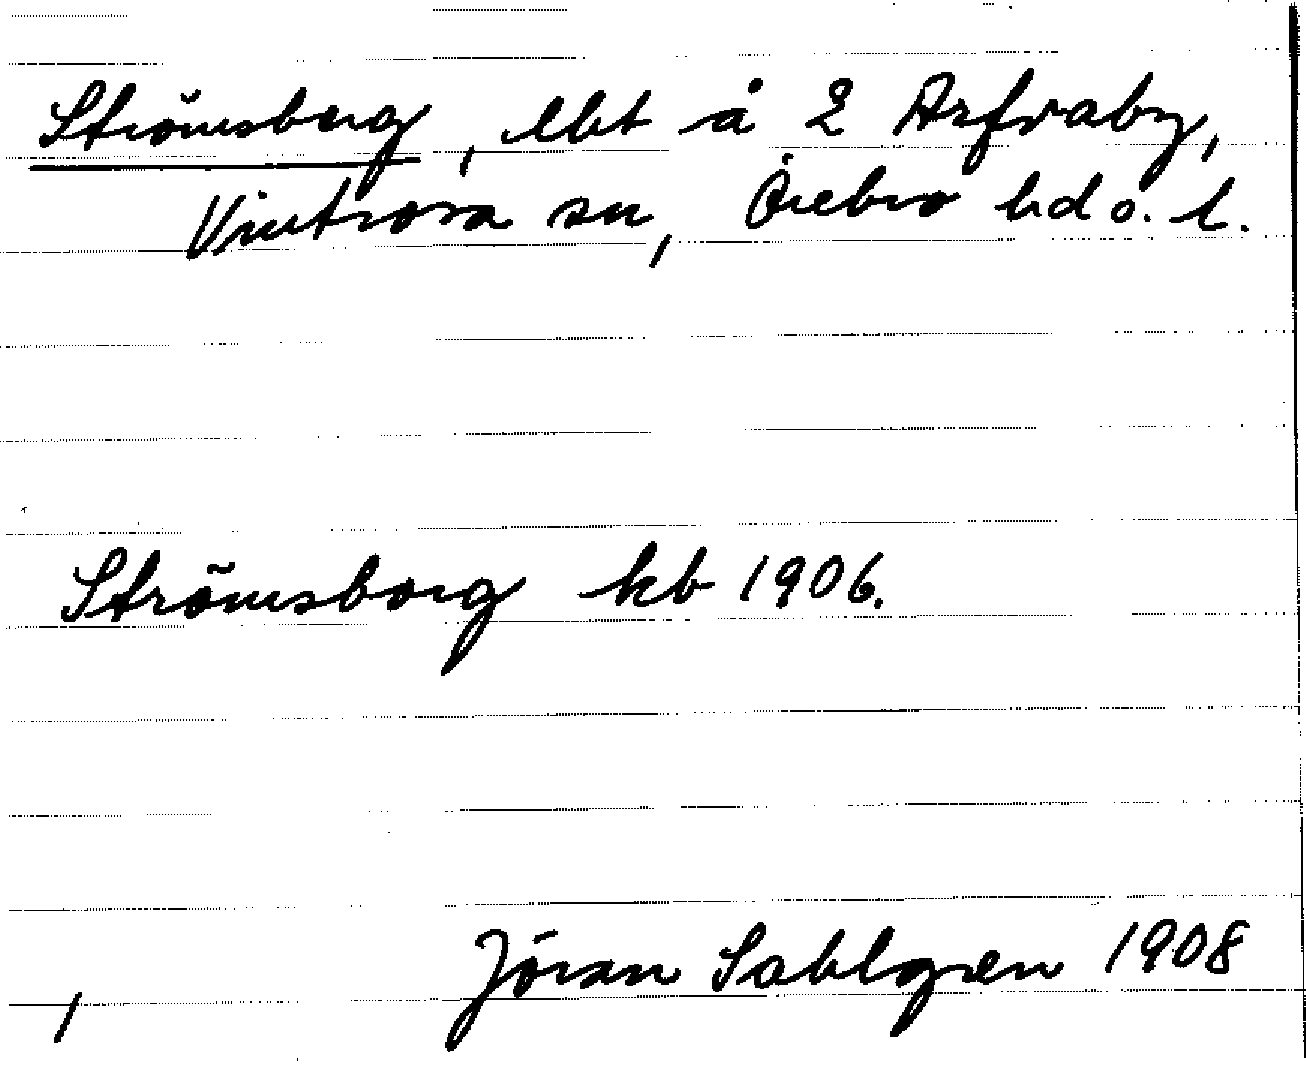 Strömsborg, lht å 2 Arfvaby,
Vintrosa sn, Örebro hd o. l.
Strömsborg kb 1906.
Jöran Sahlgren 1908